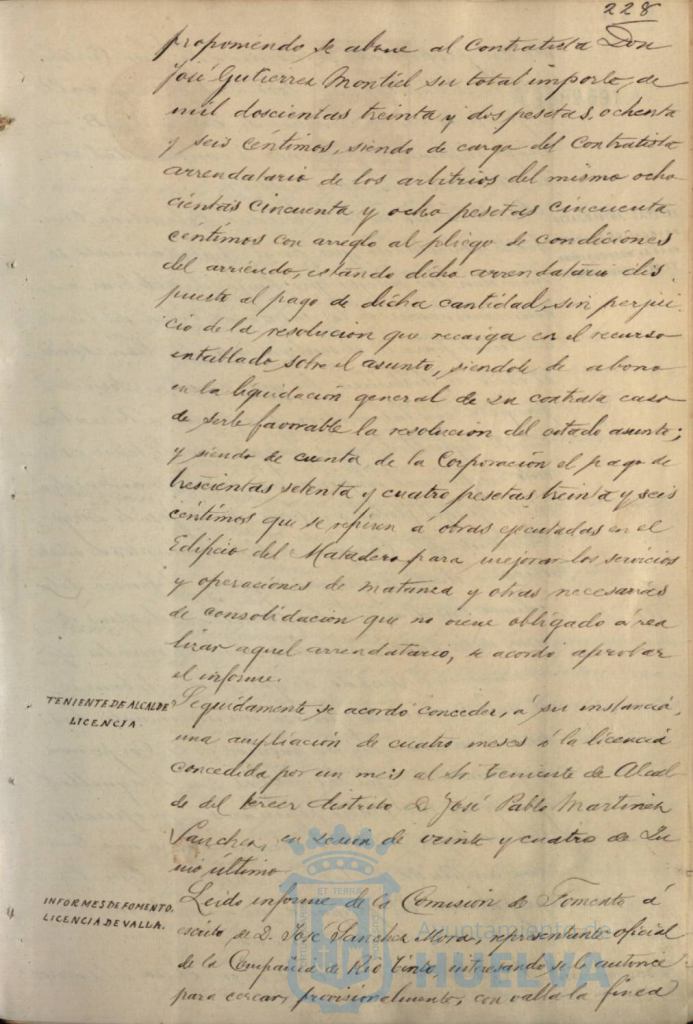 228
proponiendo se abone al Contratista Don
José Gutierrez Montiel su total importe, de
mil doscientas treinta y dos pesetas, ochenta
y seis céntimos, siendo de cargo del Contratista
arrendatario de los arbitrios del mismo ocho
cientas cincuenta y ocho pesetas cincuenta
céntimos con arreglo al pliego de condiciones
del arriendo, estando dicho arrendatario dis
puesto al pago de dicha cantidad, sin perjui
cio de la resolución que recaiga en el recurso
entablado sobre el asunto, siendole de abono
en la liquidación general de su contrata caso
de serle favorable la resolución del citado asunto;
y siendo de cuenta de la Corporación el pago de
trescientas setenta y cuatro pesetas treinta y seis
céntimos que se refieren á obras ejecutadas en el
Edificio del Matadero para mejorar los servicios
y operaciones de matanza y otras necesarias
de consolidación que no viene obligado á rea
lizar aquel arrendatario, se acordó aprobar
el informe.
TENIENTE DE ALCALDE
LICENCIA.
Seguidamente se acordó conceder, á su instancia,
una ampliación de cuatro meses á la licencia
concedida por un mes al Sr. Teniente de Alcal
de del tercer distrito D. José Pablo Martinez
Sanchez, en sesion de veinte y cuatro de Ju
nio último.
INFORMES DE FOMENTO.
LICENCIA DE VALLA.
Leido informe de la Comisión de Fomento á
escrito de D. José Sanchez Mora, representante oficial
de la Compañia de Rio Tinto, interesando se le autorice
para cercar, provisionalmente, con valla la finca
Ayuntamiento de
HUELVA